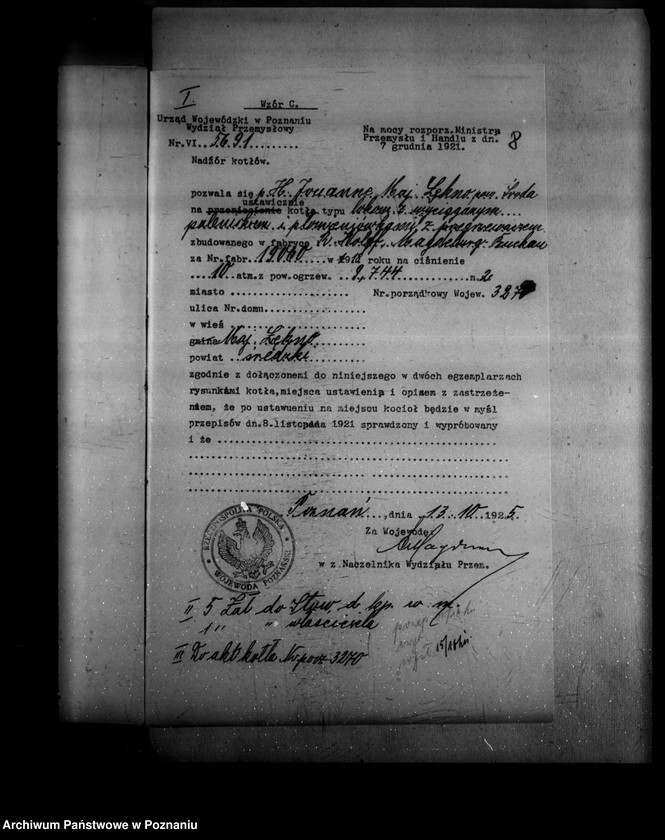 I.
Wzór C.
Urząd Wojewódzki w Poznaniu
Wydział Przemysłowy
Nr.VI..5691.........
Nadzór kotłów.
Na mocy rozporz.Ministra
Przemysłu i Handlu z dn.
7 grudnia 1921.
8
pozwala się p. H. Maj. Łękno pow. Środa
ustawienie
na przeniesienie kotła typu lokom. z wyciąganym....
paleniskiem i płomieniówkami, z przegrzewaczem
zbudowanego w fabryce R. Wolf. Magdeburg-Buckau
za Nr.fabr. 19060 ...w 1912 roku na ciśnienie
....10 atm.z pow.ogrzew. 9,744...........m.2
miasto ...................
Nr.porządkowy Wojew. 3270
ulica Nr.domu..................
w wieś .....................
gmina Maj. Łękno.
powiat ..średzki..........
zgodnie z dołączonemi do niniejszego w dwóch egzemplarzach
rysunkami kotła,miejsca ustawienia i opisem z zastrzeże-
niem, że po ustawieniu na miejscu kocioł będzie w myśl
przepisów dn.8.listopada 1921 sprawdzony i wypróbowany
i że ..................................................
Poznań...,dnia .13.10.1925.
Za Wojewodę
w z.Naczelnika Wydziału Przem.
RZECZPOSPOLITA POLSKA
WOJEWODA POZNAŃSKI
II 5 Zał do Stow. d. kp. w. m.
1 " " właściciela
III Do akt kotła Nr porz 3270
Archiwum Państwowe w Poznaniu